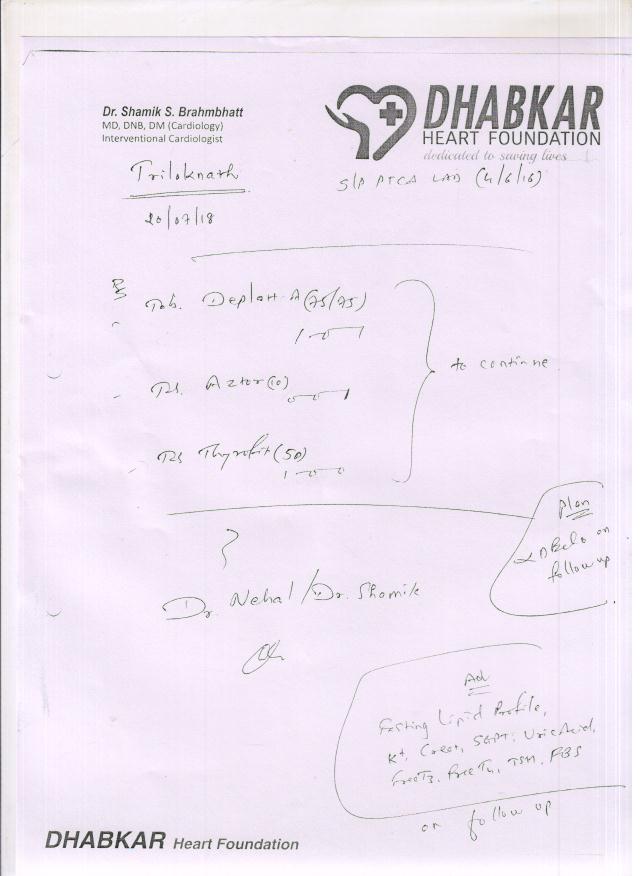 Dr. Shamik S. Brahmbhatt
MD, DNB, DM (Cardiology)
Interventional Cardiologist
DHABKAR
HEART FOUNDATION
dedicated to saving lives
Triloknath
20/07/18
S/P PTCA LAD (4/6/16)
Rx
Tab. Deplatt-A (75/75)
1-0-1
Tb. Aztor (10)
0-0-1
Tb Thyrofit (50)
1-0-0
to continue
Plan
on
follow up
Dr. Nehal / Dr. Shamik
Adv
Fasting Lipid Profile,
K+, Creat, SGPT, Uric Acid,
Free T3, Free T4, TSH, FBS
on follow up
DHABKAR Heart Foundation